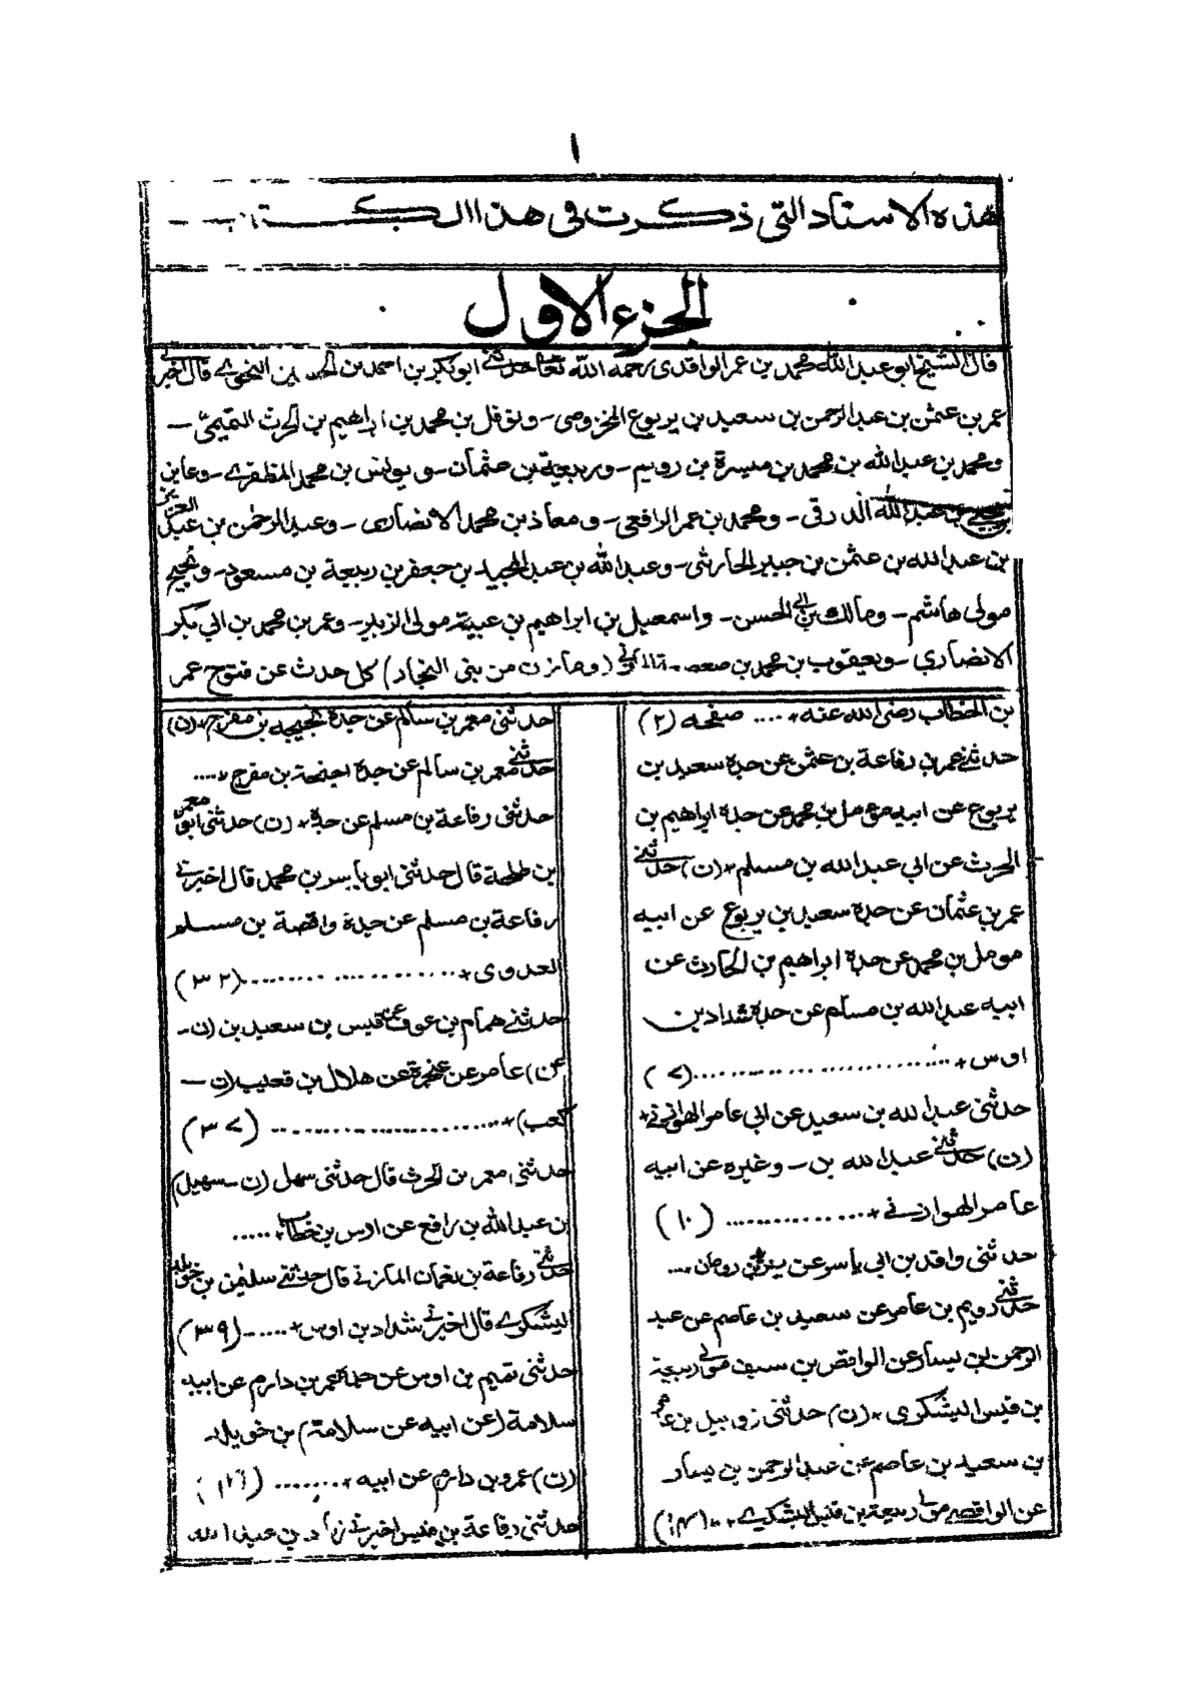 ١
هذه الاسناد التي ذكرت في هذا الكتاب
الجزء الاول
قال الشيخ ابو عبد الله محمد بن عمر الواقدى رحمه الله تعالى حدثنى ابو بكر بن احمد بن النحوى قال اخبرنى
عمر بن عثمن بن عبد الرحمن بن سعيد بن يربوع المخزومى - ونوفل بن محمد بن ابراهيم بن الحرث التيمى -
ومحمد بن عبد الله بن محمد بن ميسرة بن رويم - وربيعة بن عثمان - ويونس بن محمد المظفرى - وعابد بن
يحيى بن عبد الله الدرقى - ومحمد بن عمر الرافعى - ومعاذ بن محمد الانصارى - وعبد الرحمن بن عبد العزيز
بن عبد الله بن عثمن بن جبير الحارثى - وعبد الله بن عبد المجيد بن جعفر بن ربيعة بن مسعود - ونجيح
مولى هاشم - ومالك بن ابى الحسن - واسمعيل بن ابراهيم بن عبية مولى الزبير - وعمر بن محمد بن ابى بكر
الانصارى - ويعقوب بن محمد بن صعصـ - (ومازن من بنى النجار) كل حدث عن فتوح عمر
بن الخطاب رضى الله عنه + .... صفحه (٢)
حدثنى عمر بن رفاعة بن عثمن عن جده سعيد بن
يربوع عن ابيه مومل بن محمد عن جده ابراهيم بن
الحرث عن ابى عبد الله بن مسلم + (ن) حدثنى
عمر بن عثمان عن جده سعيد بن يربوع عن ابيه
مومل بن محمد عن جده ابراهيم بن الحارث عن
ابيه عبد الله بن مسلم عن جده شداد بن
اوس + ............ (٧)
حدثنى عبد الله بن سعيد عن ابى عامر الهوازنى +
(ن) حدثنى عبد الله بن - وغيره عن ابيه
عامر الهوازنى + ............ (١٠)
حدثنى واقد بن ابى ياسر عن يزيد بن رومان ....
حدثنى رويم بن عامر عن سعيد بن عاصم عن عبد
الرحمن بن يسار عن الواقص بن سيف مولى ربيعة
بن قيس اليشكرى + (ن) حدثنى زوبيل بن عامر
بن سعيد بن عاصم عن عبد الرحمن بن يسار
عن الواقصى مولى ربيعة بن قيس اليشكرى +
حدثنى معمر بن سالم عن جدة بن مفرج + (ن)
حدثنى معمر بن سالم عن جدة اجنحة بن مفرج + ....
حدثنى رفاعة بن مسلم عن جده + (ن) حدثنى ابو معمر
بن طلحة قال حدثنى ابو ياسر بن محمد قال اخبرنى
رفاعة بن مسلم عن جدة واقصة بن مسلم
العدوى + ............ (٣٢)
حدثنى همام بن عوف عن قيس بن سعيد بن (ن -
عن) عامر عن عنجرة عن هلال بن قعلب (ن -
كعب) + ............ (٣٧)
حدثنى معمر بن الحرث قال حدثنى سهل (ن - سهيل)
بن عبد الله بن رافع عن اوس بن خطاب + .....
حدثنى رفاعة بن نعمان المازنى قال حدثنى سليمن بن خويلد
اليشكرى قال اخبرنى شداد بن اوس + ..... (٣٩)
حدثنى تميم بن اوس عن جده عمر بن دارم عن ابيه
سلامة (عن ابيه عن سلامة) بن خويلد
(ن) عمرو بن دارم عن ابيه + ........
حدثنى رفاعة بن قيس اخبرنى بن عبد الله